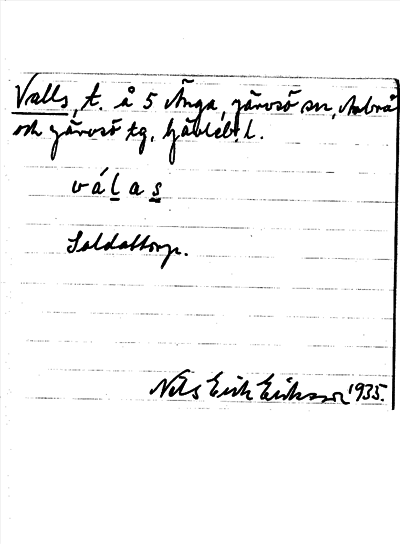 Valls, t. å 5 Änga, Järvsö sn, Arbrå
och Järvsö tg, Gävleb. l.
válas
Soldattorp.
Nils Erik Eriksson 1935.